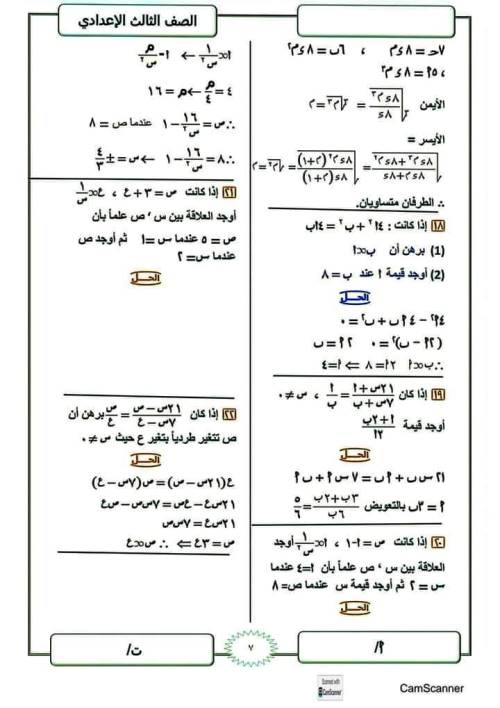 الصف الثالث الإعدادي
٧حـ = ٨ء م ، ٦ب = ٨ء م٢
، ١٥ = ٨ء م٣
الأيمن
الأيسر =
∴ الطرفان متساويان.
١٨ إذا كانت : ٤أ٢ + ب٢ = ٤أب
(1) برهن أن ب∝أ
(2) أوجد قيمة أ عند ب = ٨
الحـل
٤أ٢ − ٤أب + ب٢ = ٠
(٢أ − ب)٢ = ٠ ٢أ = ب
∴ب∝أ ٢أ = ٨ ⇒ أ=٤
١٩ إذا كان (٢١س+أ)/(٧س+ب) = أ/ب ، س≠٠
أوجد قيمة (أ+٢ب)/٢أ
الحـل
٢١س ب + أب = ٧س أ + ب أ
أ = ٣ب بالتعويض (٣ب+٢ب)/٦ب = ٥/٦
٢٠ إذا كانت ص = أ-١ ، أ∝١/س٢ أوجد
العلاقة بين س ، ص علماً بأن أ=٤ عندما
س = ٢ ثم أوجد قيمة س عندما ص= ٨
الحـل
أ∝١/س٢ ← أ = م/س٢
٤ = م/٤ ← م = ١٦
∴ص = ١٦/س٢ − ١ عندما ص = ٨
∴٨ = ١٦/س٢ − ١ ← س = ±٤/٣
٢١ إذا كانت ص = ٣ + ع ، ع∝١/س
أوجد العلاقة بين س ، ص علماً بأن
ص = ٥ عندما س = ١ ثم أوجد ص
عندما س = ٢
الحـل
٢٢ إذا كان (٢١س−ص)/(٧س−ع) = ص/ع برهن أن
ص تتغير طردياً بتغير ع حيث س ≠ ٠
الحـل
ع(٢١س−ص) = ص(٧س−ع)
٢١س ع − ع ص = ٧س ص − ص ع
٢١س ع = ٧س ص
ص = ٣ع ⇒ ∴ ص∝ع
أ/
٧
ت/
Scanned with
CamScanner
CamScanner